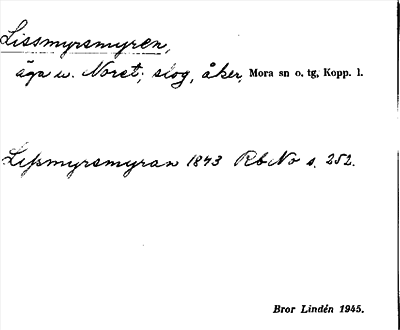 Lissmyrsmyren,
äga u. Noret; slog, åker, Mora sn o. tg, Kopp. l.
Lissmyrsmyran 1843 Rb No s. 252.
Bror Lindén 1945.